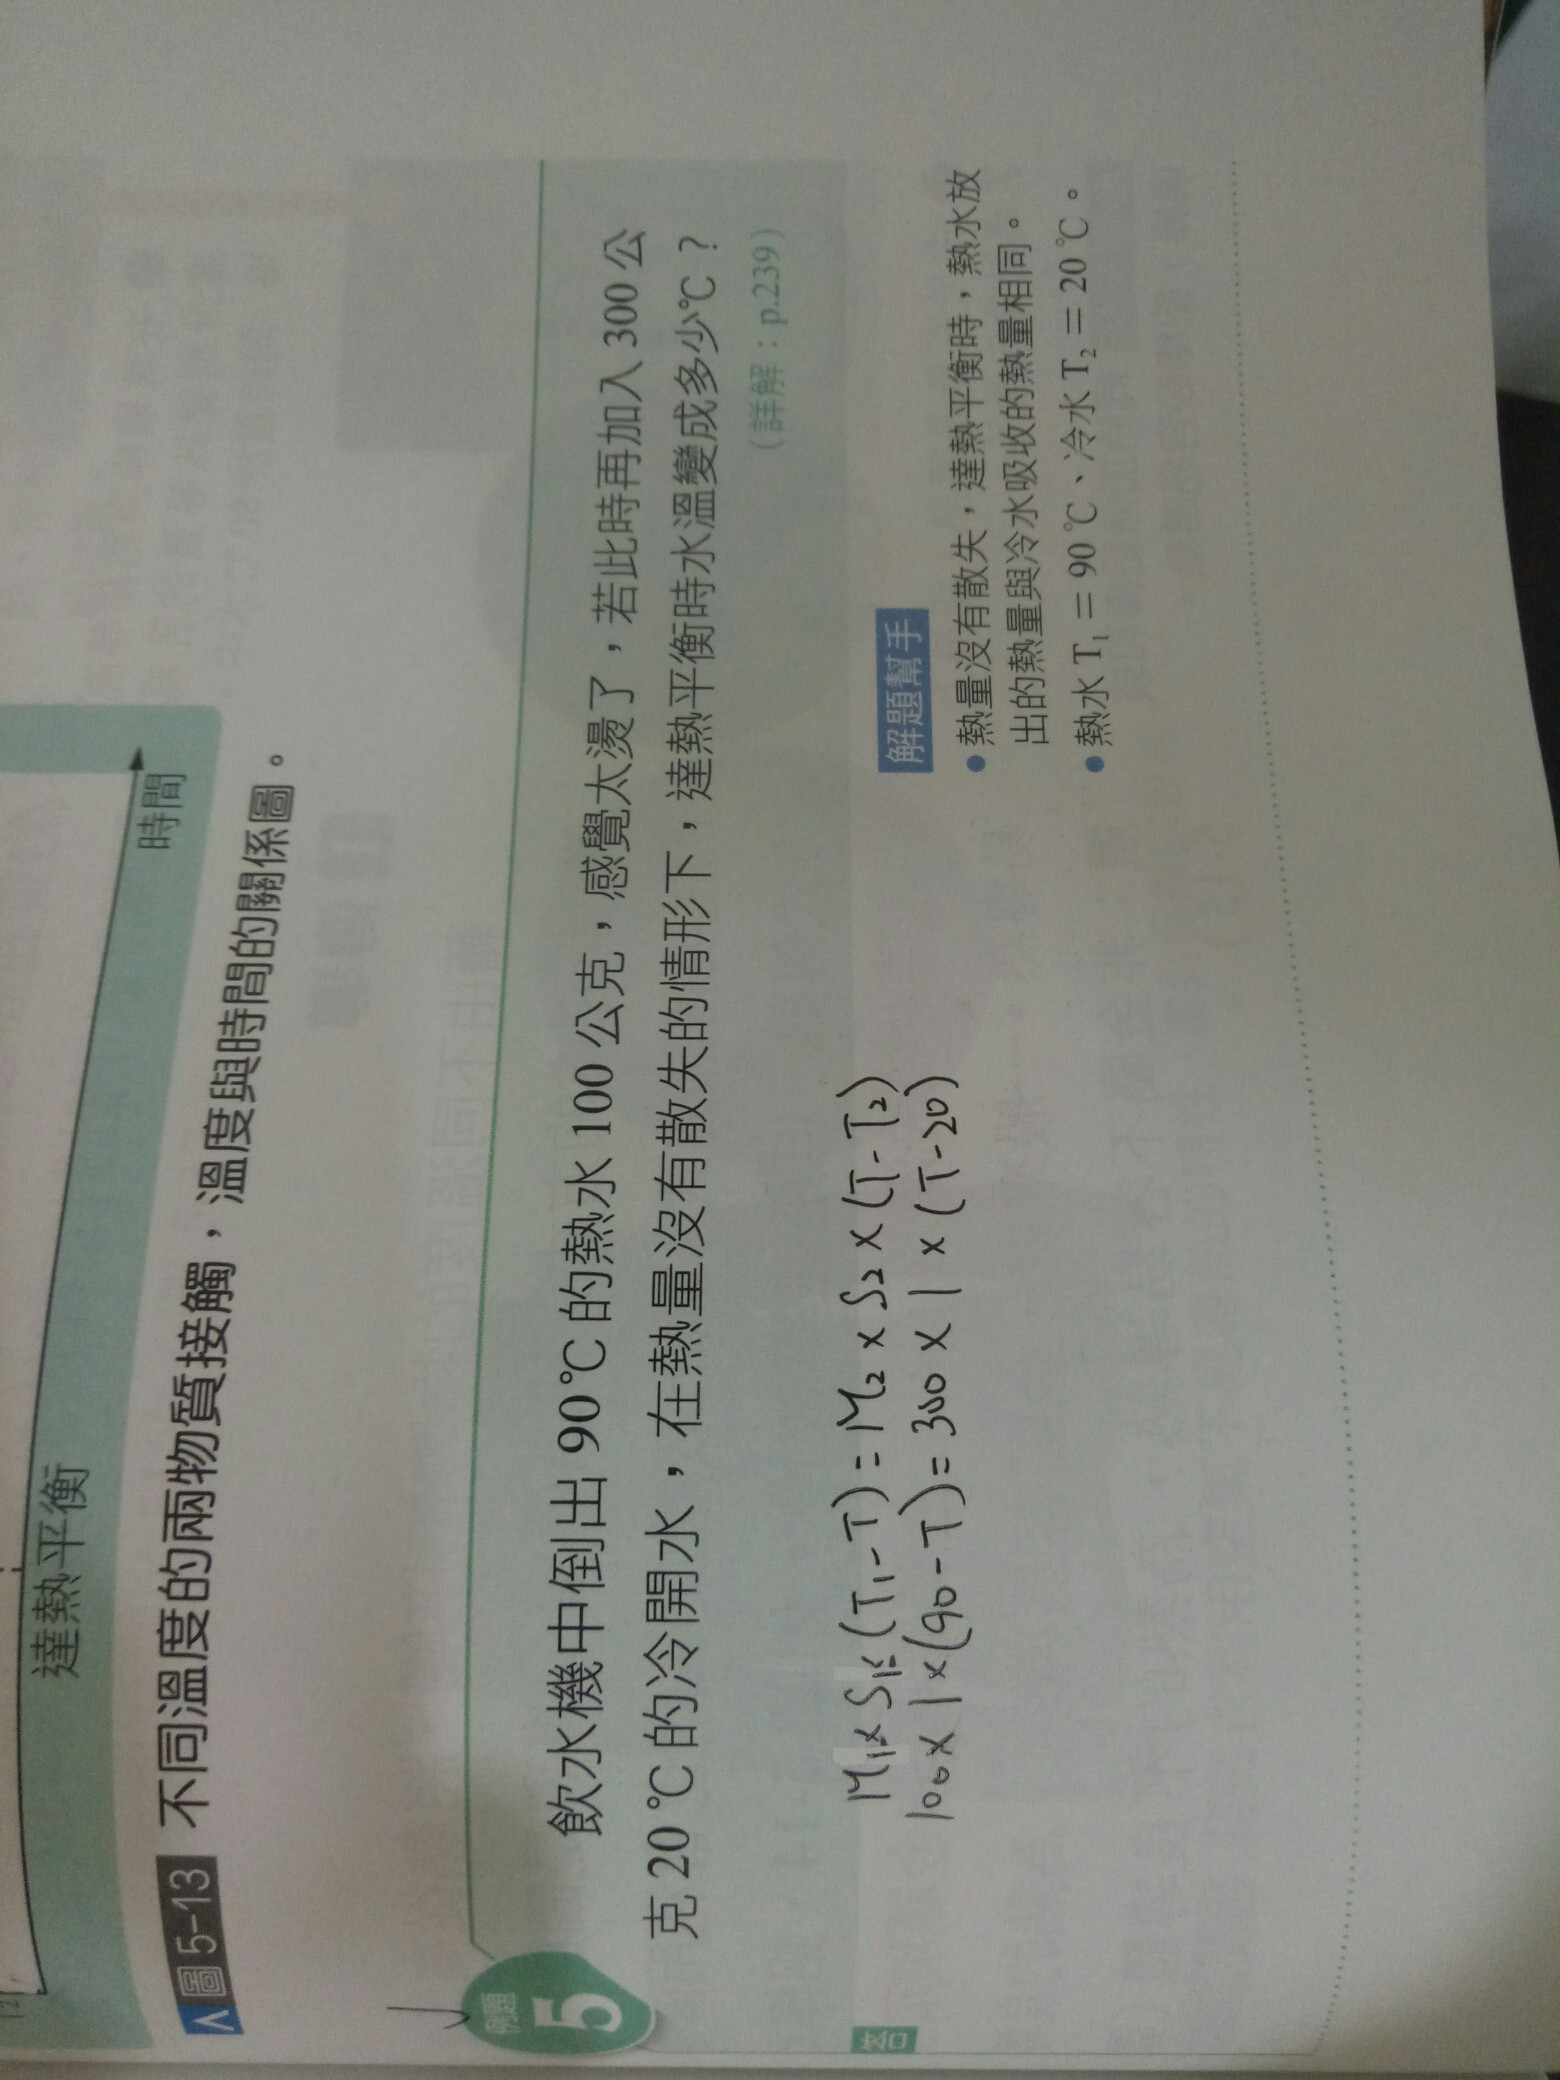 時間
達熱平衡
圖 5-13 不同溫度的兩物質接觸，溫度與時間的關係圖。
例題
5
飲水機中倒出 90 ℃ 的熱水 100 公克，感覺太燙了，若此時再加入 300 公
克 20 ℃ 的冷開水，在熱量沒有散失的情形下，達熱平衡時水溫變成多少℃？
（詳解：p.239）
答
M₁×S₁×(T₁-T)=M₂×S₂×(T-T₂)
100×1×(90-T)=300×1×(T-20)
解題幫手
● 熱量沒有散失，達熱平衡時，熱水放
出的熱量與冷水吸收的熱量相同。
● 熱水 T₁＝90 ℃、冷水 T₂＝20 ℃。